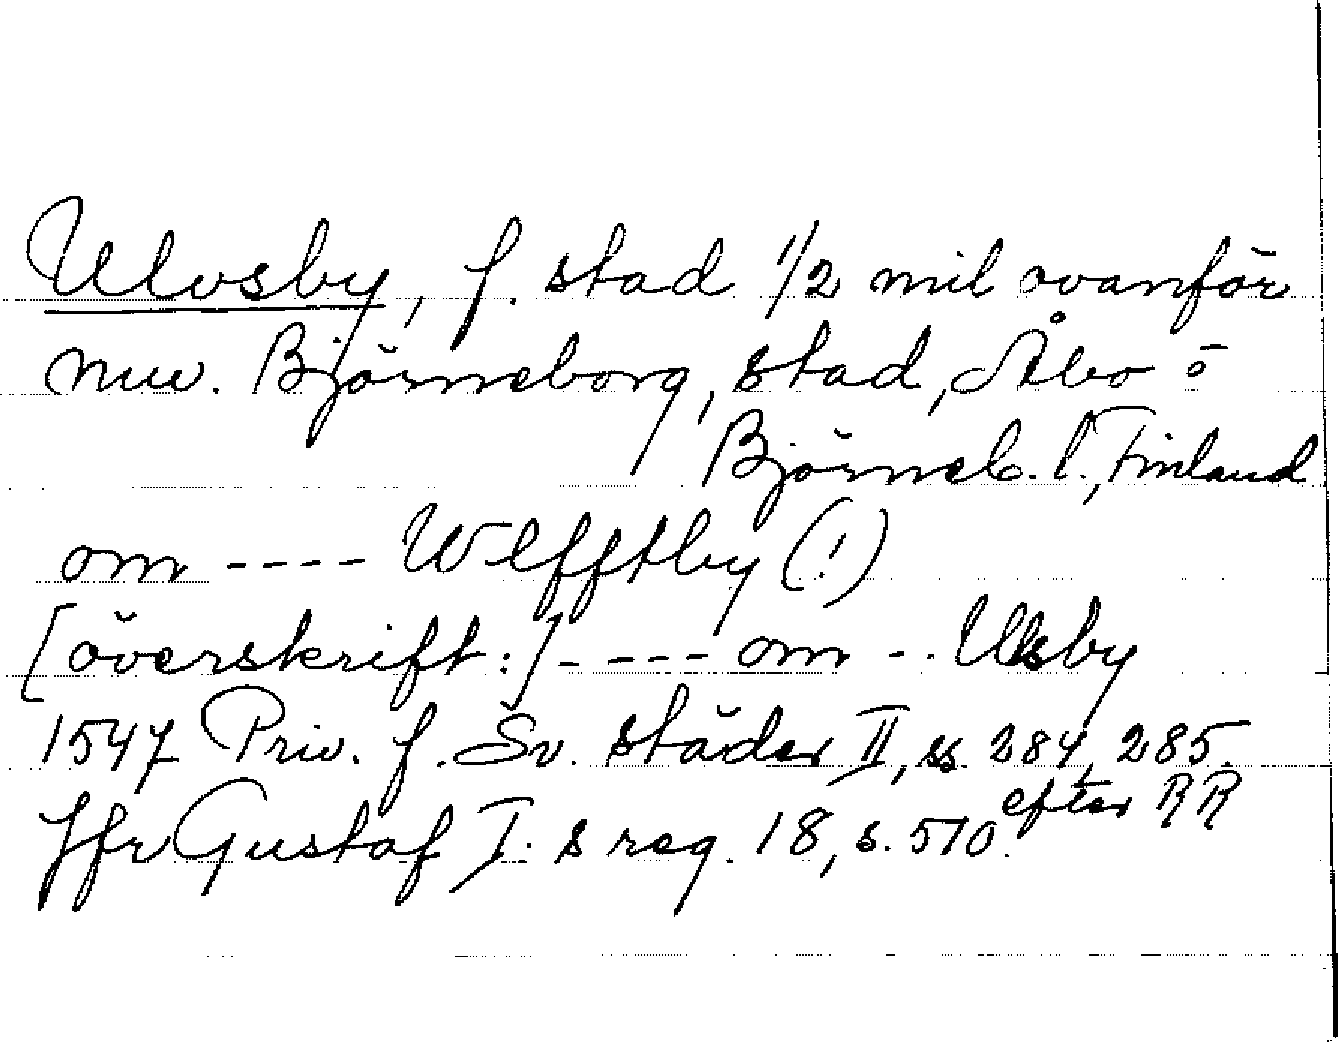 Ulvsby, f. stad 1/2 mil ovanför
nuv. Björneborg, stad, Åbo o
Björneb. l., Finland
om ---- Wlfftby (!)
[överskrift:] ---- om -- Ulsby
1547 Priv. f. Sv. städer II, ss. 284, 285.
efter RR
Jfr Gustaf I:s reg. 18, s. 510.